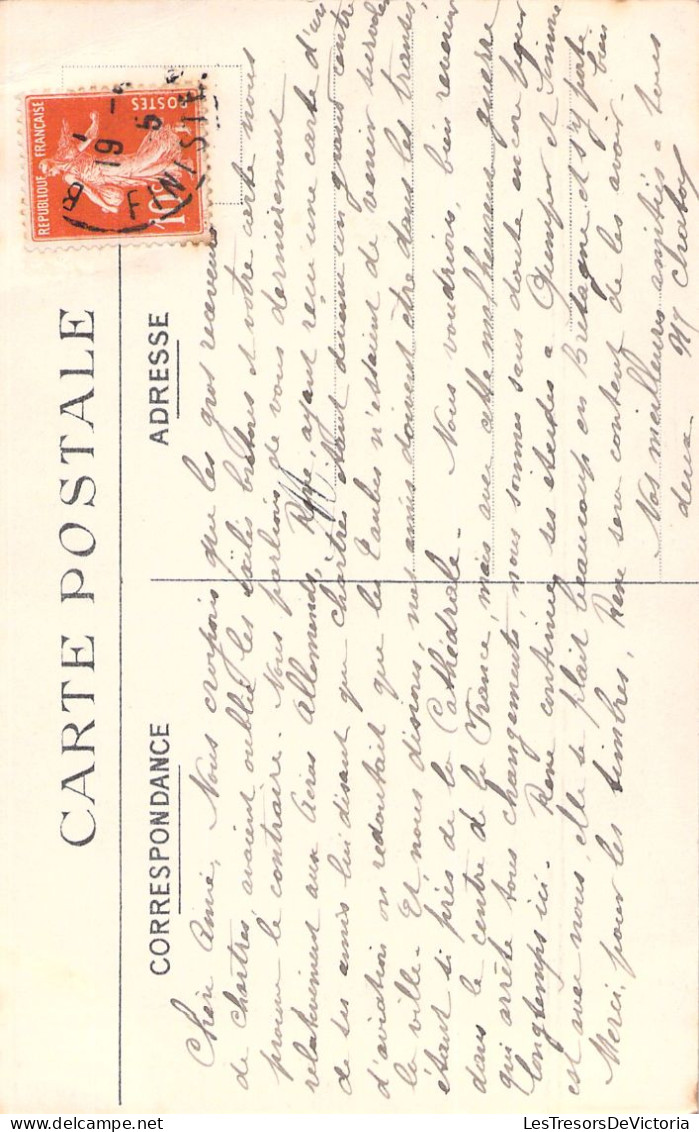 CARTE POSTALE
CORRESPONDANCE
ADRESSE
REPUBLIQUE FRANÇAISE
POSTES
10
19 -
5
FINISTE
Chère Aimée, Nous croyions que les gros receveurs
de Chartres, avaient oublié les exilés bretons et votre carte nous
prouve le contraire. Nous parlions de vous dernièrement
relativement aux Aéros Allemands, René, ayant reçu une carte d'un
de ses amis lui disant que Chartres étant devenu un grand centre
d'aviation on redoutait que les Taubes n'essaient de venir survoler
la ville. Et nous disions, nos amis doivent être dans les transes,
étant si près de la Cathédrale. Nous voudrions, bien revenir
dans le centre de la France, mais avec cette malheureuse guerre
qui arrête tous changements, nous sommes sans doute encore pour
longtemps ici. René continue ses études a Quimper et Simone
est avec nous, elle se plait beaucoup en Bretagne et s'y porte bien
Merci, pour les timbres, René sera content de les avoir
Nos meilleures amitiés a tous
deux.
LesTresorsDeVictoria